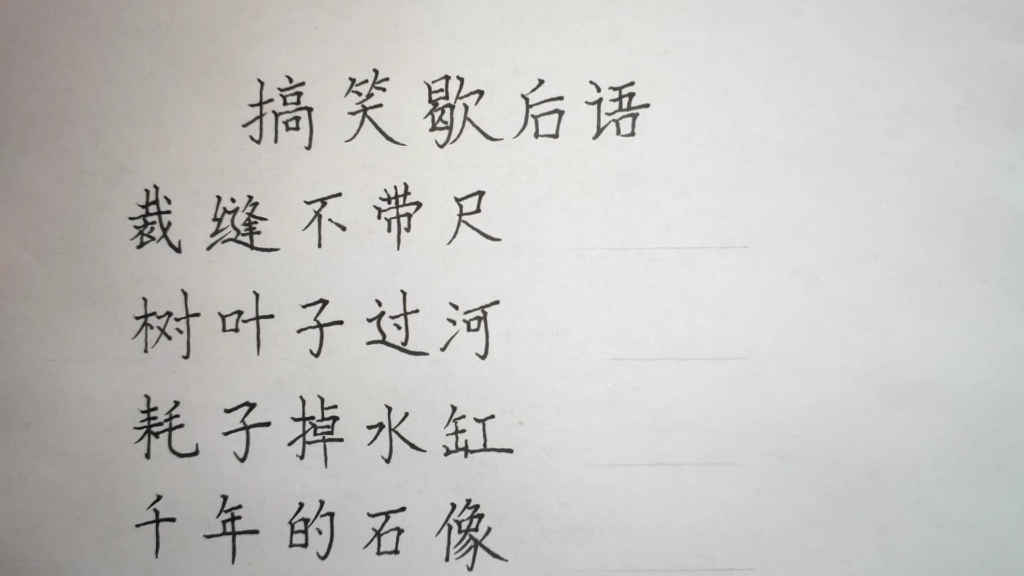 搞笑歇后语
裁缝不带尺
树叶子过河
耗子掉水缸
千年的石像